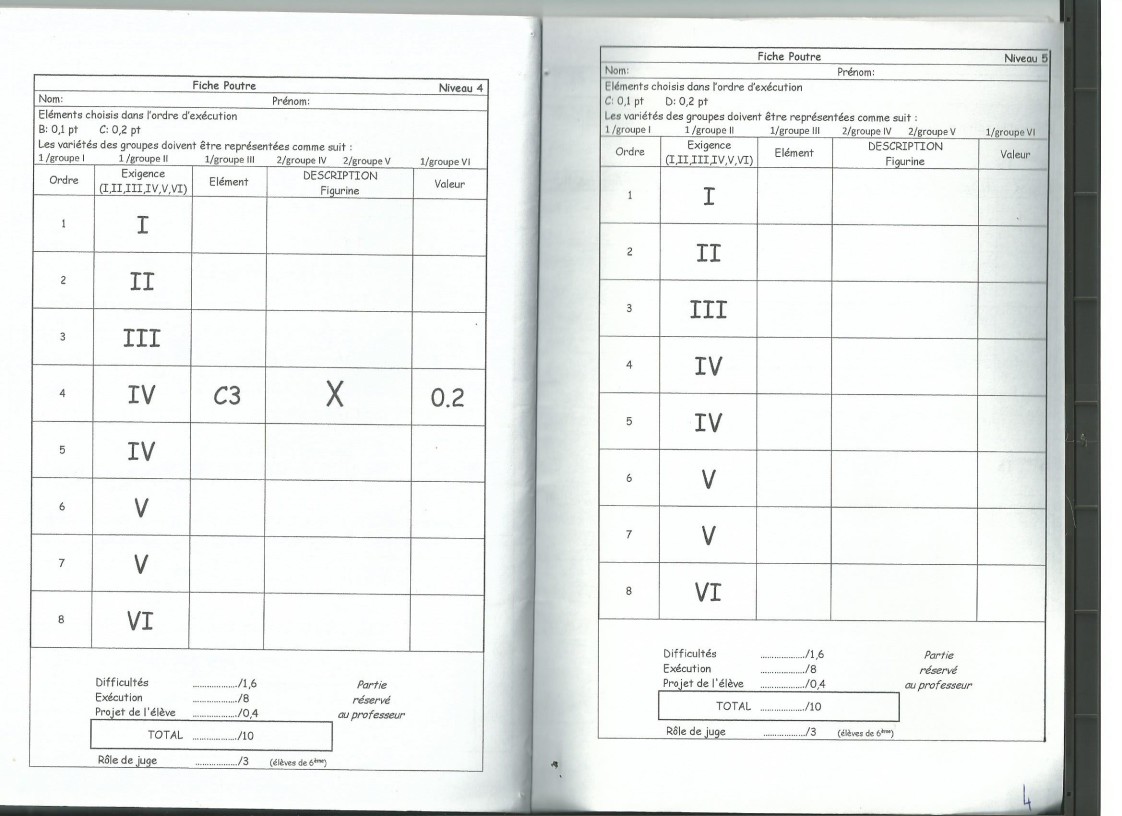 Fiche Poutre Niveau 4
Nom: Prénom:
Eléments choisis dans l'ordre d'exécution
B: 0,1 pt C: 0,2 pt
Les variétés des groupes doivent être représentées comme suit :
1 /groupe I 1 /groupe II 1/groupe III 2/groupe IV 2/groupe V 1/groupe VI
Ordre Exigence (I,II,III,IV,V,VI) Elément DESCRIPTION Figurine Valeur
1 I
2 II
3 III
4 IV C3 X 0.2
5 IV
6 V
7 V
8 VI
Difficultés ................../1,6 Partie
Exécution ................../8 réservé
Projet de l'élève ................../0,4 au professeur
TOTAL ................../10
Rôle de juge ................../3 (élèves de 6ème)
Fiche Poutre Niveau 5
Nom: Prénom:
Eléments choisis dans l'ordre d'exécution
C: 0,1 pt D: 0,2 pt
Les variétés des groupes doivent être représentées comme suit :
1 /groupe I 1 /groupe II 1/groupe III 2/groupe IV 2/groupe V 1/groupe VI
Ordre Exigence (I,II,III,IV,V,VI) Elément DESCRIPTION Figurine Valeur
1 I
2 II
3 III
4 IV
5 IV
6 V
7 V
8 VI
Difficultés ................../1,6 Partie
Exécution ................../8 réservé
Projet de l'élève ................../0,4 au professeur
TOTAL ................../10
Rôle de juge ................../3 (élèves de 6ème)
4